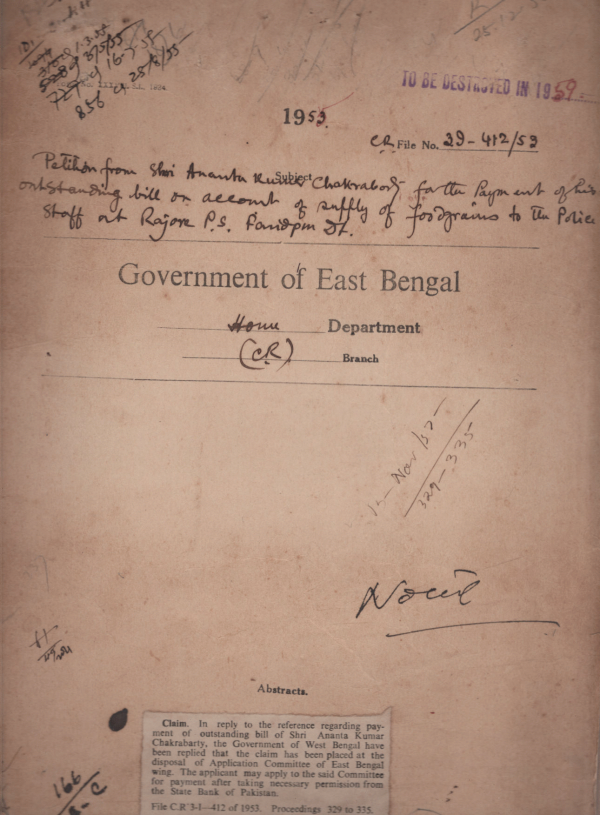 25-12-5
528 of 375/55
727 of 16-7-55
856 of 25/8/55
TO BE DESTROYED IN 1959.
1953.
C.R. File No. 3I-412/53
Subject
Petition from Shri Ananta Kumar Chakraborty for the Payment of his
outstanding bill on account of supply of foodgrains to the Police
Staff at Rajore P.S. Faridpur Dt.
Government of East Bengal
Home Department
(CR) Branch
Nov/53
329-335
Abstracts.
Claim. In reply to the reference regarding pay-
ment of outstanding bill of Shri Ananta Kumar
Chakrabarty, the Government of West Bengal have
been replied that the claim has been placed at the
disposal of Application Committee of East Bengal
wing. The applicant may apply to the said Committee
for payment after taking necessary permission from
the State Bank of Pakistan.
File C.R 3-I—412 of 1953. Proceedings 329 to 335.
166